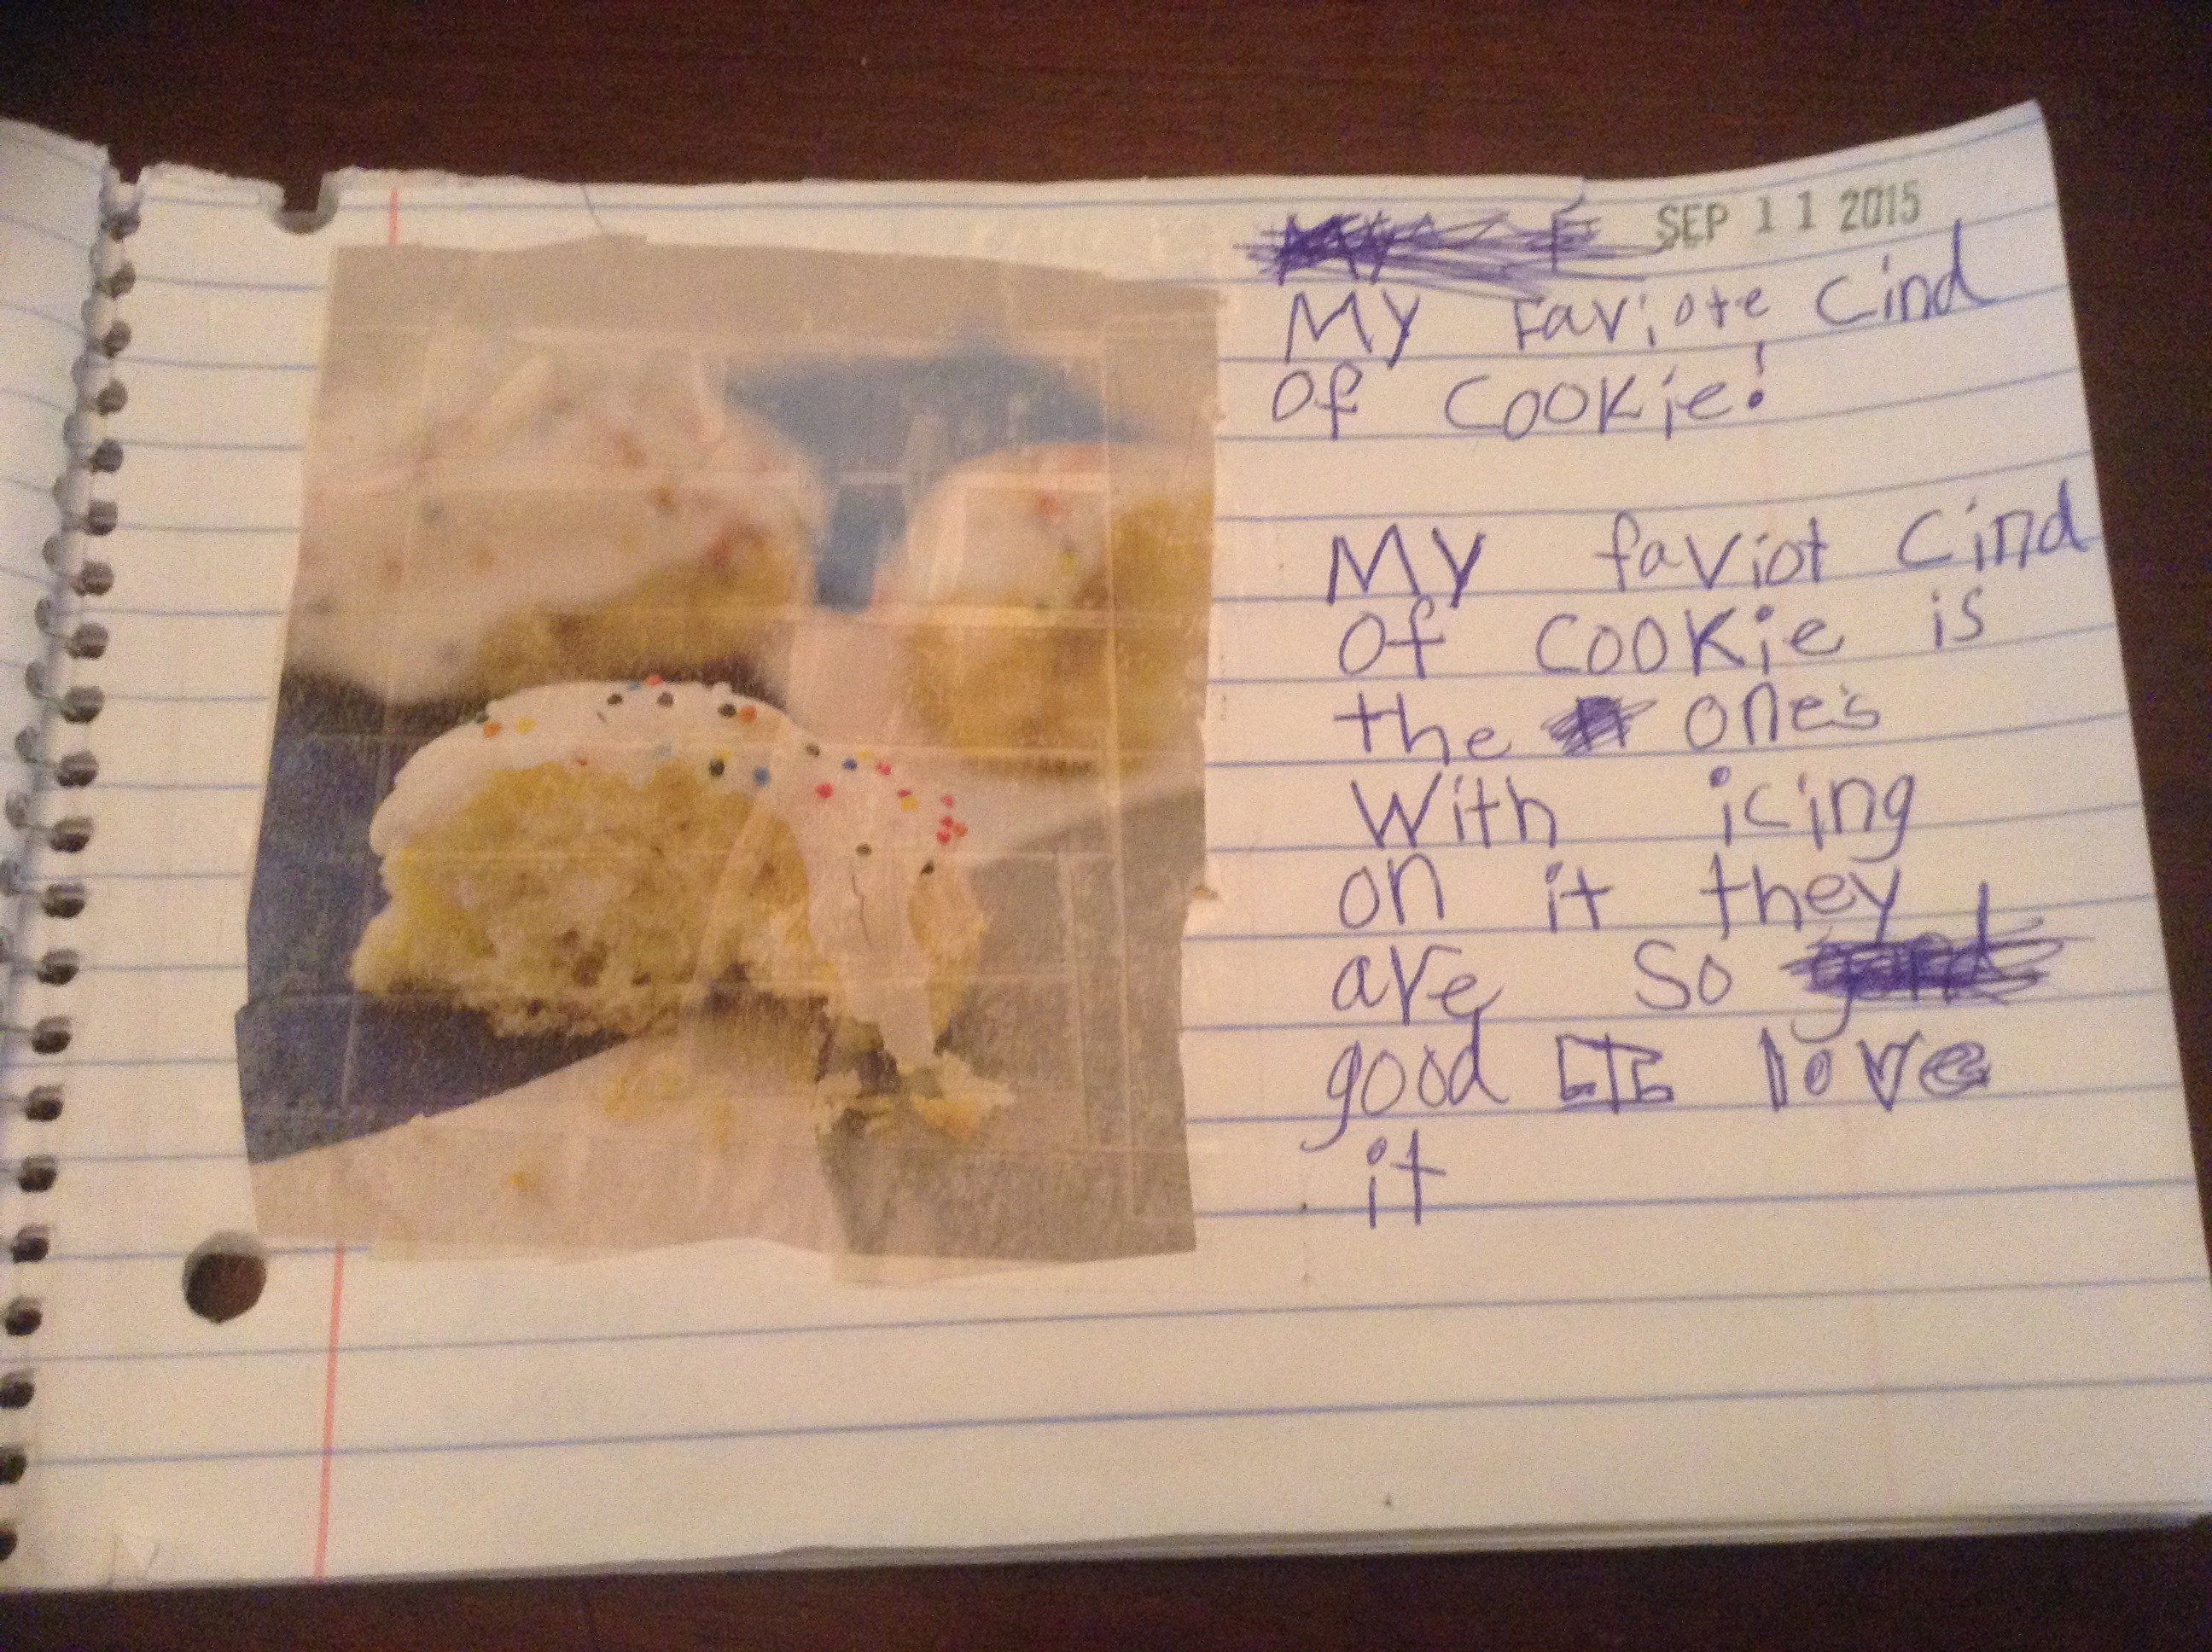 SEP 11 2015
My Faviote Cind
of cookie!
My faviot Cind
of cookie is
the one's
With icing
on it they
are so
good I love
it